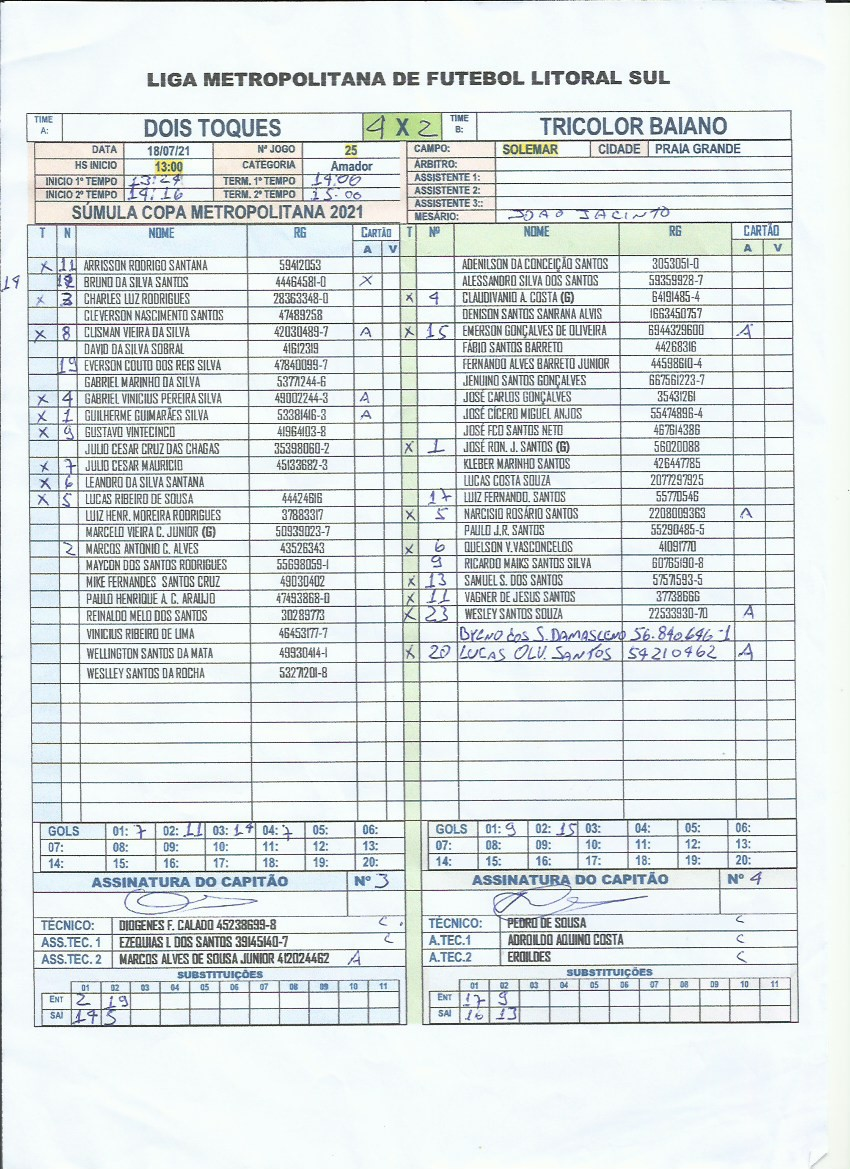 LIGA METROPOLITANA DE FUTEBOL LITORAL SUL
TIME A: DOIS TOQUES 4 X 2 TIME B: TRICOLOR BAIANO
DATA 18/07/21 Nº JOGO 25 CAMPO: SOLEMAR CIDADE PRAIA GRANDE
HS INICIO 13:00 CATEGORIA Amador ÁRBITRO:
INICIO 1º TEMPO 13:29 TERM. 1º TEMPO 14:00 ASSISTENTE 1:
INICIO 2º TEMPO 14:16 TERM. 2º TEMPO 15:00 ASSISTENTE 2:
ASSISTENTE 3::
SÚMULA COPA METROPOLITANA 2021 MESÁRIO: JOAO JACINTO
T N NOME RG CARTÃO T Nº NOME RG CARTÃO
A V A V
X 11 ARRISSON RODRIGO SANTANA 59412053 ADENILSON DA CONCEIÇÃO SANTOS 3053051-0
BRUNO DA SILVA SANTOS 44464581-0 X ALESSANDRO SILVA DOS SANTOS 59359928-7
X 3 CHARLES LUZ RODRIGUES 28363348-0 X 4 CLAUDIVANIO A. COSTA (G) 64191485-4
CLEVERSON NASCIMENTO SANTOS 47489258 DENISON SANTOS SANRANA ALVIS 1663450757
X 8 CLISMAN VIEIRA DA SILVA 42030489-7 A X 15 EMERSON GONÇALVES DE OLIVEIRA 6944329600 A
DAVID DA SILVA SOBRAL 41612319 FÁBIO SANTOS BARRETO 44268316
19 EVERSON COUTO DOS REIS SILVA 47840099-7 FERNANDO ALVES BARRETO JUNIOR 44598610-4
GABRIEL MARINHO DA SILVA 53771244-6 JENUINO SANTOS GONÇALVES 667561223-7
X 4 GABRIEL VINICIUS PEREIRA SILVA 49002244-3 A JOSÉ CARLOS GONÇALVES 35431261
X 1 GUILHERME GUIMARÃES SILVA 53381416-3 A JOSÉ CÍCERO MIGUEL ANJOS 55474896-4
X 9 GUSTAVO VINTECINCO 41964103-8 JOSÉ FCO SANTOS NETO 467614386
JULIO CESAR CRUZ DAS CHAGAS 35398060-2 X 1 JOSÉ RON. J. SANTOS (G) 56020088
X 7 JULIO CESAR MAURICIO 45133682-3 KLEBER MARINHO SANTOS 426447785
X 6 LEANDRO DA SILVA SANTANA LUCAS COSTA SOUZA 2077297925
X 5 LUCAS RIBEIRO DE SOUSA 44424616 17 LUIZ FERNANDO. SANTOS 55770546
LUIZ HENR. MOREIRA RODRIGUES 37883317 X 5 NARCISIO ROSÁRIO SANTOS 2208009363 A
MARCELO VIEIRA C. JUNIOR (G) 50939023-7 PAULO J.R. SANTOS 55290485-5
2 MARCOS ANTONIO C. ALVES 43526343 X 6 QUELSON V.VASCONCELOS 41091770
MAYCON DOS SANTOS RODRIGUES 55698059-1 9 RICARDO MAIKS SANTOS SILVA 60765190-8
MIKE FERNANDES SANTOS CRUZ 49030402 X 13 SAMUEL S. DOS SANTOS 57571593-5
PAULO HENRIQUE A. C. ARAUJO 47493868-0 X 11 VAGNER DE JESUS SANTOS 37738666
REINALDO MELO DOS SANTOS 30289773 X 23 WESLEY SANTOS SOUZA 22533930-70 A
VINICIUS RIBEIRO DE LIMA 46453177-7 DOS S. DAMASCENO 56.840.646-1
WELLINGTON SANTOS DA MATA 49930414-1 X 20 LUCAS OLV. SANTOS 54210462 A
WESLLEY SANTOS DA ROCHA 53271201-8
GOLS 01: 7 02: 11 03: 19 04: 7 05: 06: GOLS 01: 9 02: 15 03: 04: 05: 06:
07: 08: 09: 10: 11: 12: 13: 07: 08: 09: 10: 11: 12: 13:
14: 15: 16: 17: 18: 19: 20: 14: 15: 16: 17: 18: 19: 20:
ASSINATURA DO CAPITÃO Nº 3 ASSINATURA DO CAPITÃO Nº 4
TÉCNICO: DIOGENES F. CALADO 45238699-8 C TÉCNICO: PEDRO DE SOUSA C
ASS.TEC. 1 EZEQUIAS L DOS SANTOS 39145140-7 C A.TEC.1 ADROILDO AQUINO COSTA C
ASS.TEC. 2 MARCOS ALVES DE SOUSA JUNIOR 412024462 A A.TEC.2 EROILDES C
SUBSTITUIÇÕES SUBSTITUIÇÕES
01 02 03 04 05 06 07 08 09 10 11 01 02 03 04 05 06 07 08 09 10 11
ENT 2 19 ENT 17 9
SAI 14 5 SAI 16 13